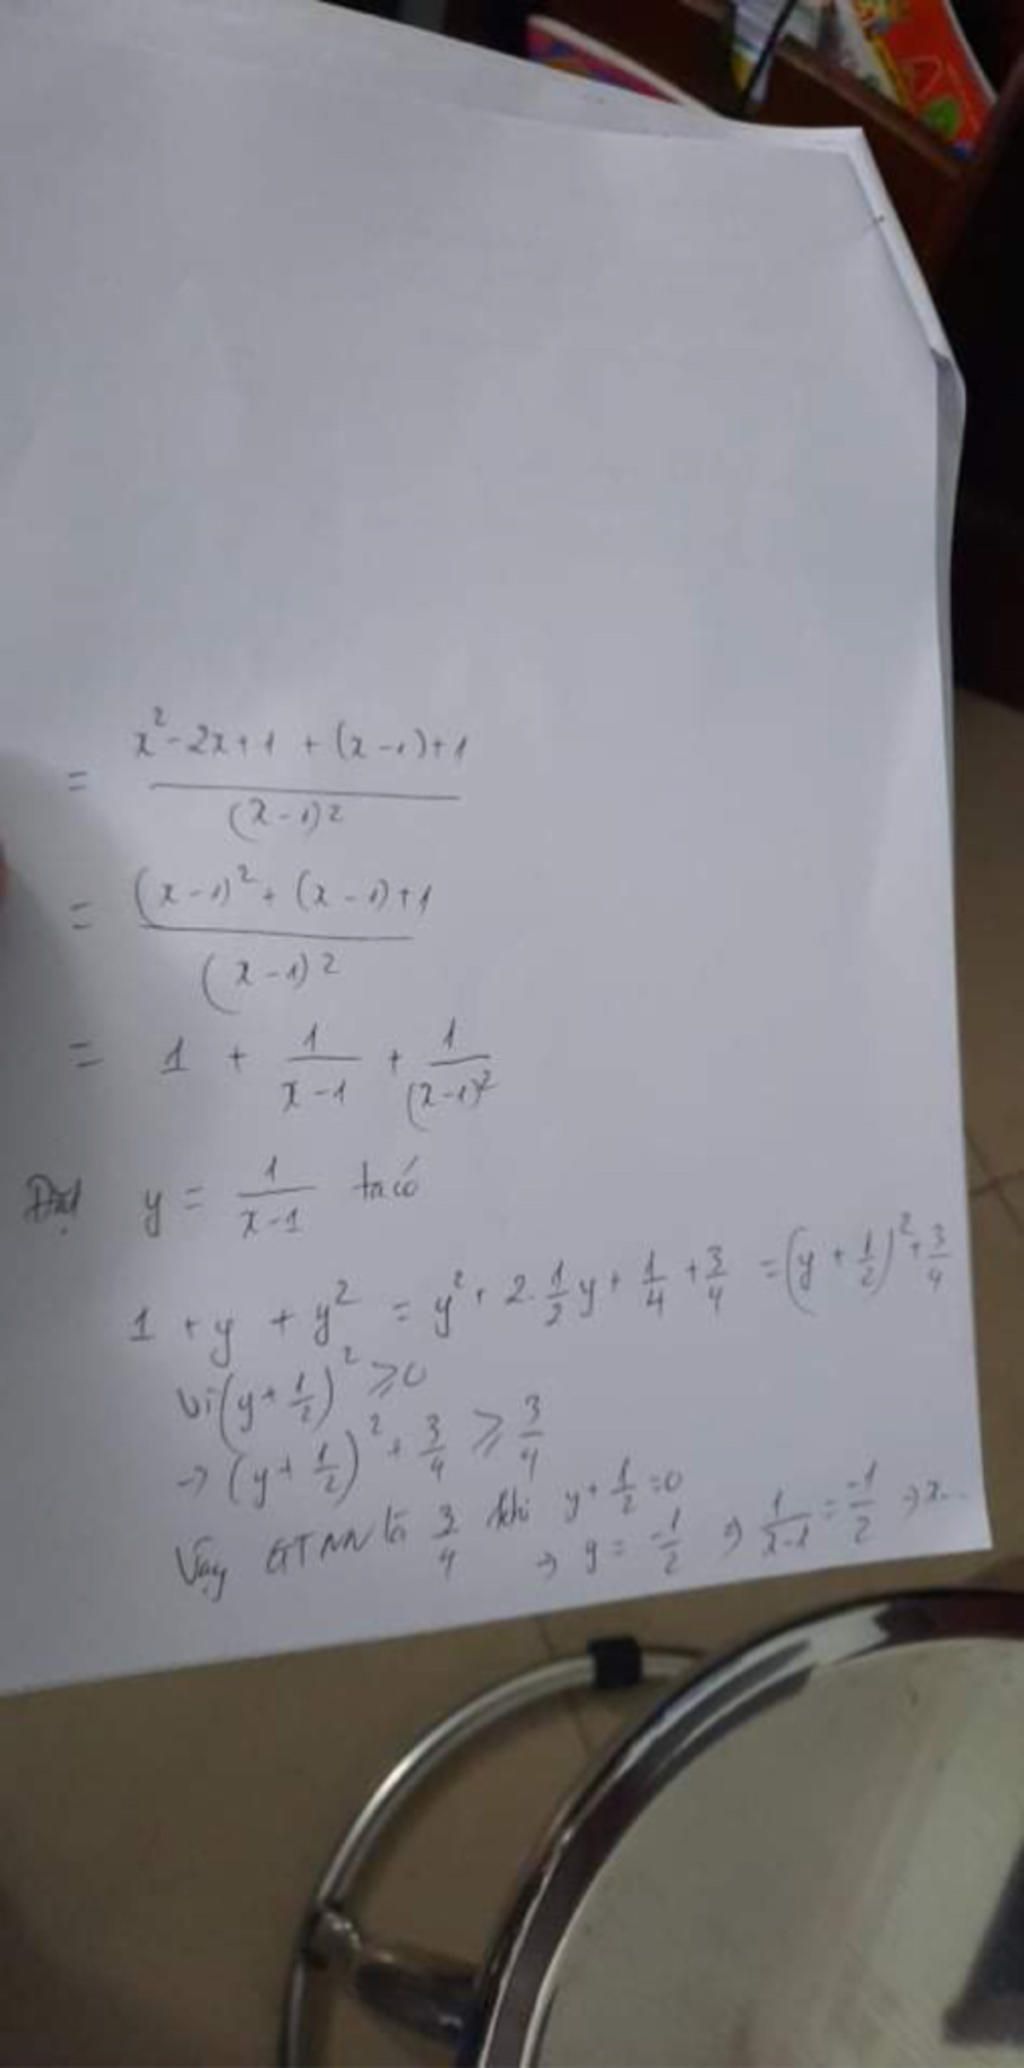 = x² - 2x + 1 + (x - 1) + 1 / (x - 1)²
= (x - 1)² + (x - 1) + 1 / (x - 1)²
= 1 + 1/(x - 1) + 1/(x - 1)²
Đặt y = 1/(x - 1) ta có
1 + y + y² = y² + 2.1/2y + 1/4 + 3/4 = (y + 1/2)² + 3/4
Vì (y + 1/2)² ⩾ 0
→ (y + 1/2)² + 3/4 ⩾ 3/4
Vậy GTNN là 3/4 khi y + 1/2 = 0
→ y = -1/2 → 1/(x - 1) = -1/2 → x...